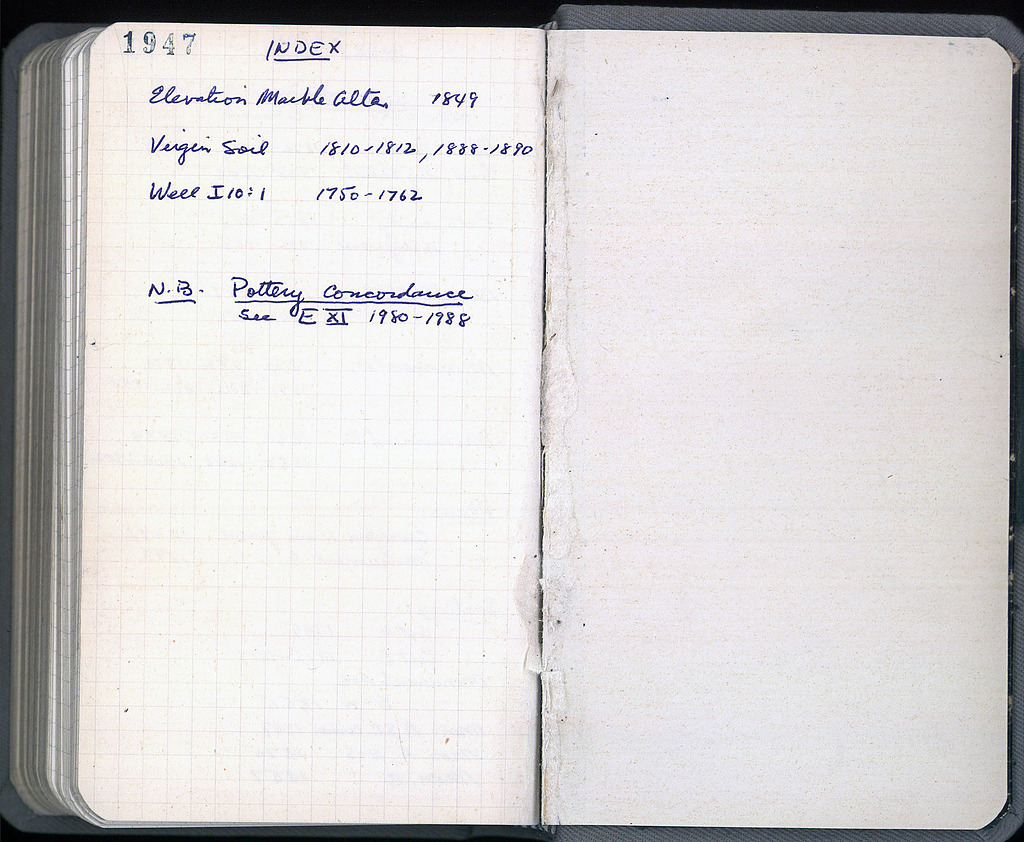 1947
INDEX
Elevation Marble Altar 1849
Virgin Soil 1810-1812, 1888-1890
Well I 10:1 1750-1762
N.B. Pottery Concordance
See E XI 1980-1988